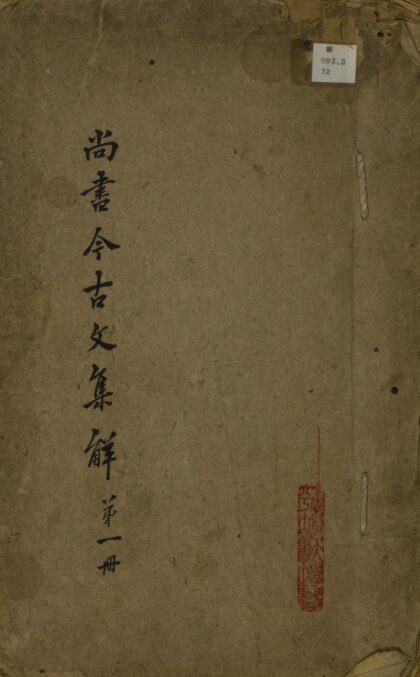 尚書今古文集解 第一冊
093.2
72